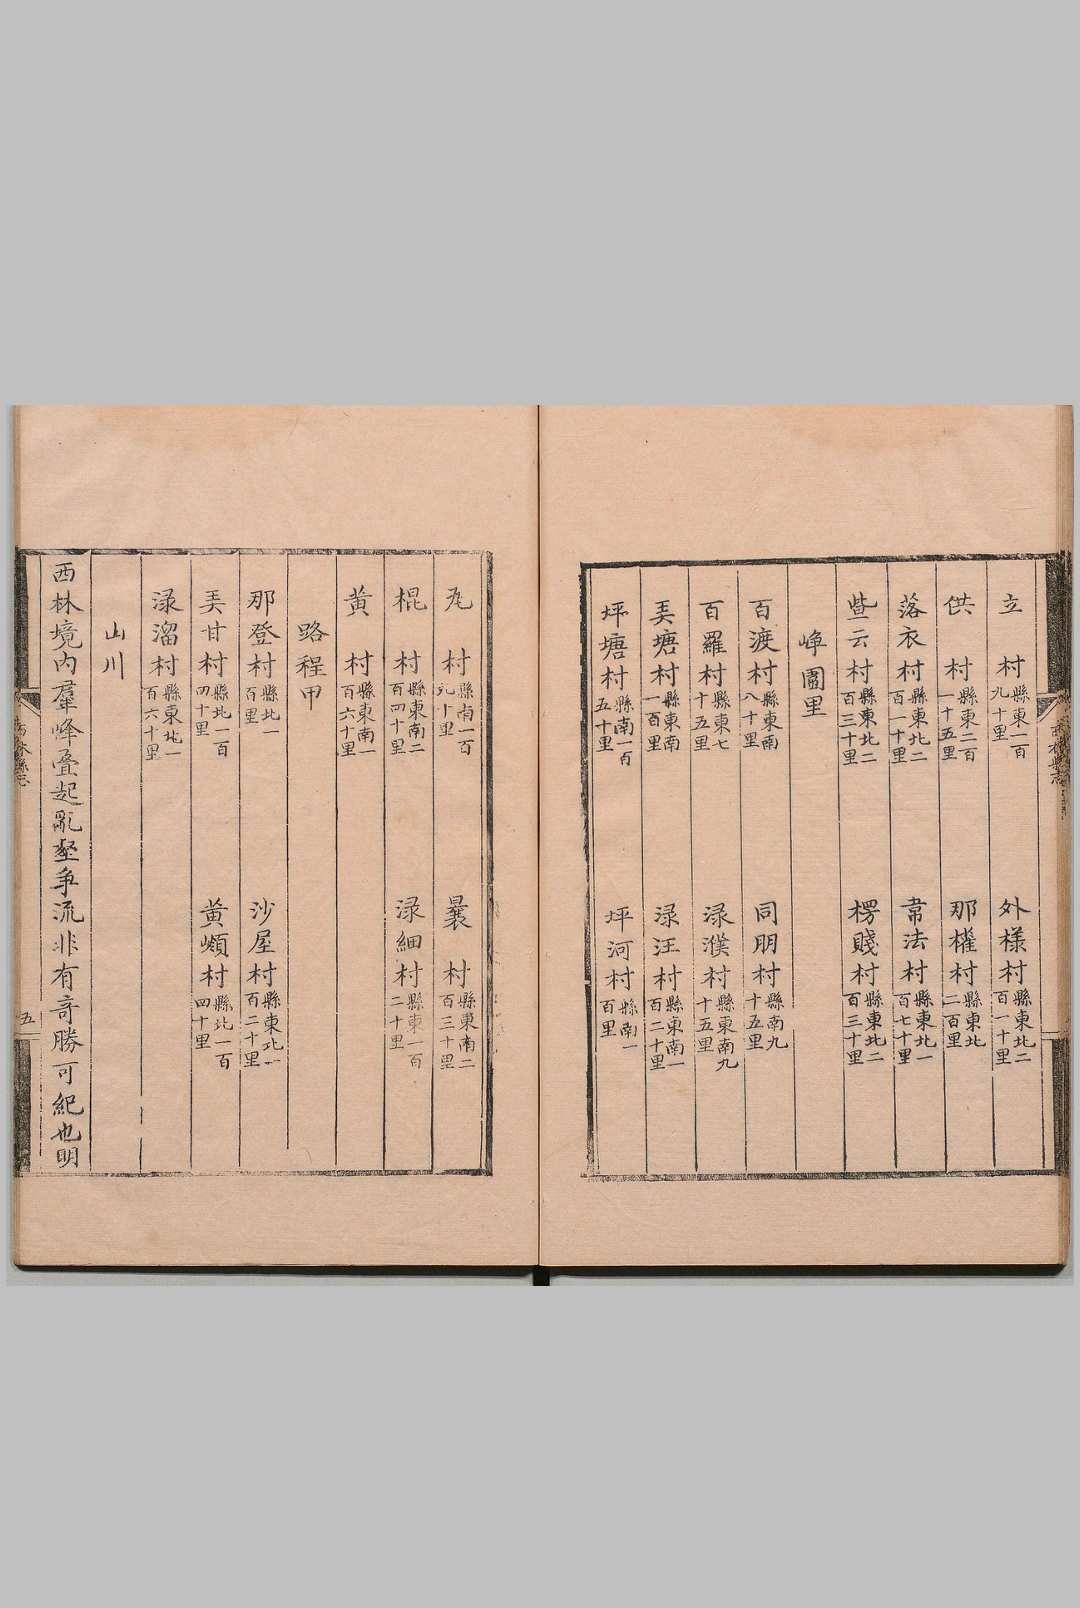 立　村縣東一百九十里　外樣村縣東北二百一十里
供　村縣東二百一十五里　那權村縣東北二百里
落衣村縣東北二百一十里　韋法村縣東北一百七十里
些云村縣東北二百三十里　楞賤村縣東北二百三十里
崢圍里
百渡村縣東南八十里　同朋村縣南九十五里
百羅村縣東七十五里　渌濮村縣東南九十五里
美塘村縣東南一百里　渌汪村縣東南一百二十里
坪塘村縣南一百五十里　坪河村縣南一百里
西林縣志
村縣南一百九十里　曩　村縣東南二百三十里
棍　村縣東南二百四十里　渌細村縣東一百二十里
黃　村縣東南一百六十里
路程甲
那登村縣北一百里　沙屋村縣東北一百二十里
美甘村縣北一百四十里　黃村縣北一百四十里
渌溜村縣東北一百六十里
山川
西林境內羣峰疊起亂壑爭流非有奇勝可紀也明
五